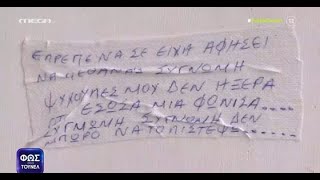 MEGA
ΕΠΡΕΠΕ ΝΑ ΣΕ ΕΙΧΑ ΑΦΗΣΕΙ
ΝΑ ΠΕΘΑΝΑΣ ΣΥΓΝΩΜΗ
ΨΥΧΟΥΛΕΣ ΜΟΥ ΔΕΝ ΗΞΕΡΑ
ΕΣΩΣΑ ΜΙΑ ΦΩΝΙΣΑ....
ΣΥΓΜΩΝΗ ΣΥΓΝΩΝΗ ΔΕΝ
ΜΠΩΡΩ ΝΑ ΤΟ ΠΙΣΤΕΨΩ.....
ΦΩΣ
ΤΟΥΝΕΛ